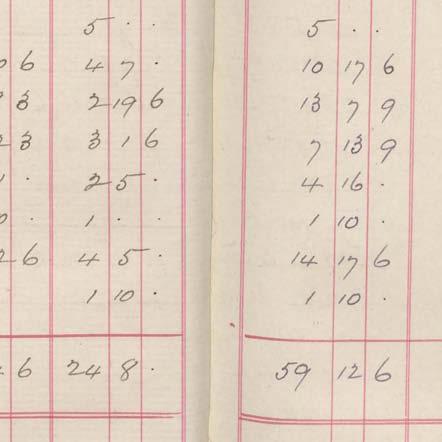 5 · · 5 · ·
6 4 7 · 10 17 6
3 2 19 6 13 7 9
3 3 1 6 7 13 9
· 2 5 · 4 16 ·
· 1 · · 1 10 ·
6 4 5 · 14 17 6
1 10 · 1 10 ·
6 24 8 · 59 12 6